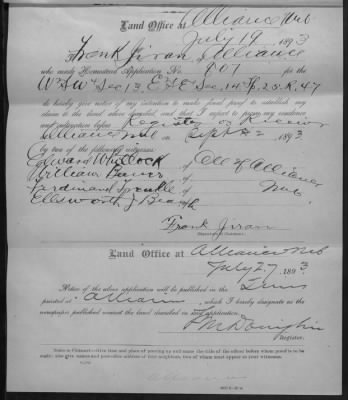 Land Office at Alliance Neb
July 19 1893
I, Frank Jiran, of Alliance
who made Homestead Application No. 807 for the
W½ SW¼ Sec 13 E½ SE¼ Sec. 14 Tp. 25 R. 47
do hereby give notice of my intention to make final proof to establish my
claim to the land above described, and that I expect to prove my residence
and cultivation before Register or Receiver
Alliance Neb on Sept 2 1893,
by two of the following witnesses:
Edward Whillock of
William Bauer of All of Alliance
Ferdinand of Neb.
Ellsworth J Beach of
Frank Jiran
(Signature of Claimant)
Land Office at Alliance Neb
July 27, 1893.
Notice of the above application will be published in the
printed at Alliance, which I hereby designate as the
newspaper published nearest the land described in said application.
Register.
Notice to Claimant.—Give time and place of proving up and name the title of the officer before whom proof is to be
made; also give names and post-office address of four neighbors, two of whom must appear as your witnesses.